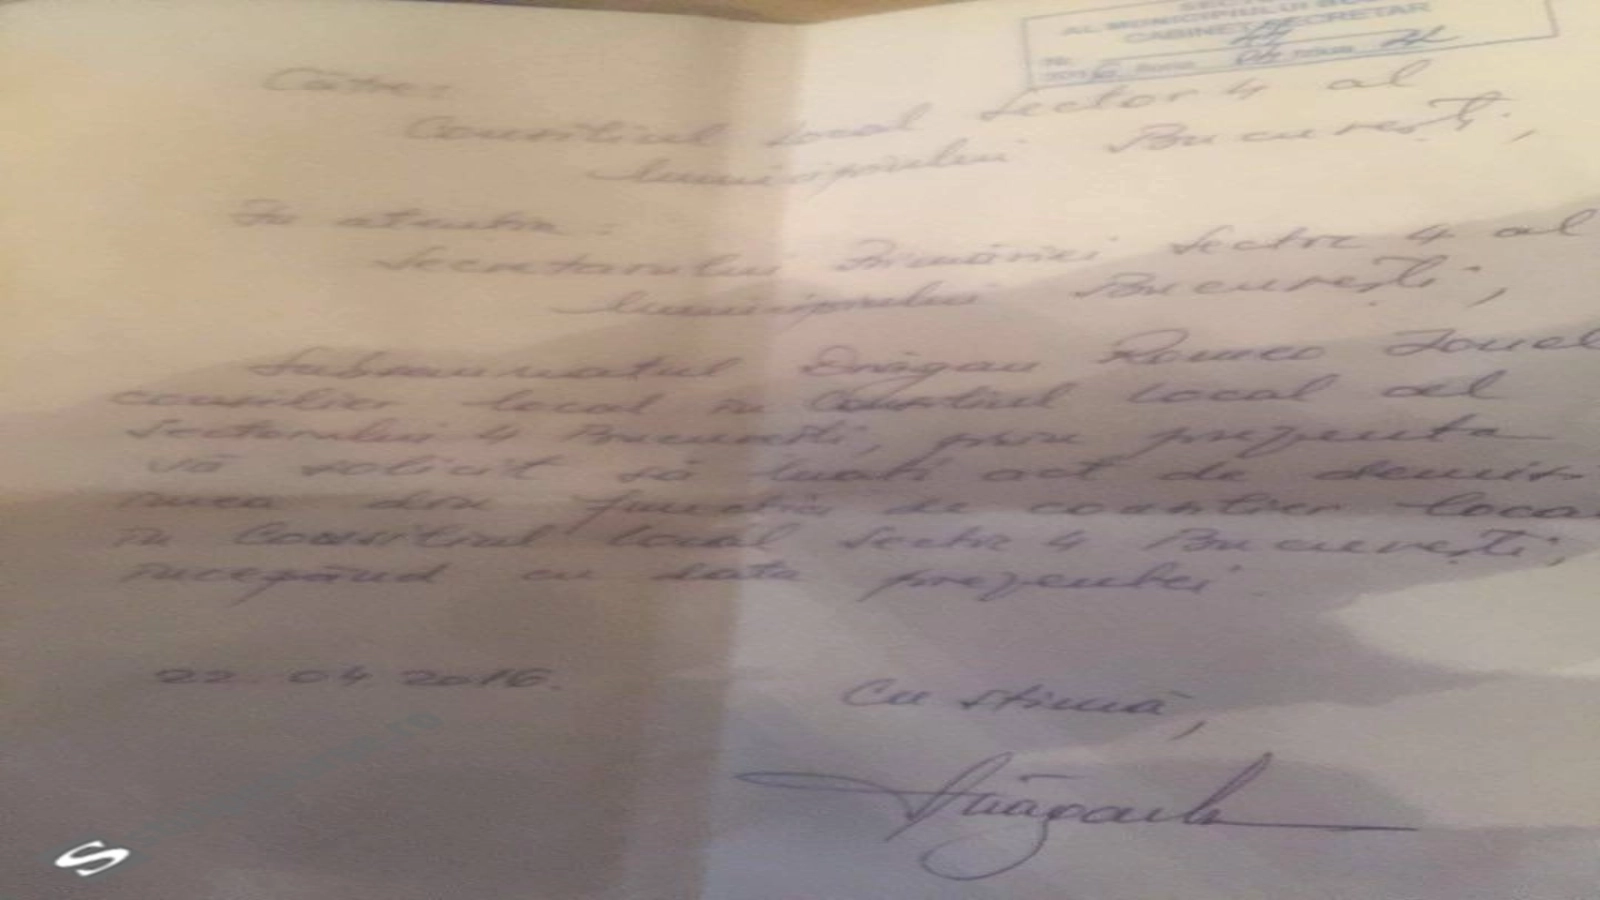 SECTO
AL MUNICIPIULUI BUC
CABINET SECRETAR
Nr.
2016 luna 04 ziua 22
Către:
Consiliul Local Sector 4 al
Municipiului București,
În atenția:
Secretarului Primăriei Sector 4 al
Municipiului București,
Subsemnatul Drăgan Romeo Ionel
consilier local în Consiliul Local al
Sectorului 4 București, prin prezenta
vă solicit să luați act de demisi-
unea din funcția de consilier local
în Consiliul Local Sector 4 București,
începând cu data prezentei.
22.04.2016.
Cu stimă,
S